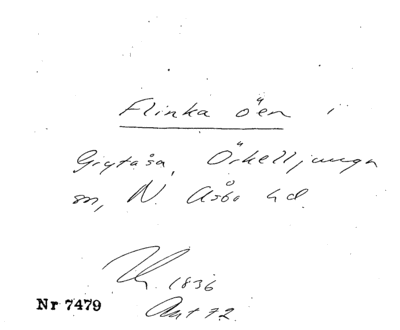 Flinka öen i
Grytåsa, Örkelljunga
sn, N. Åsbo hd.
1836
Nr 7479